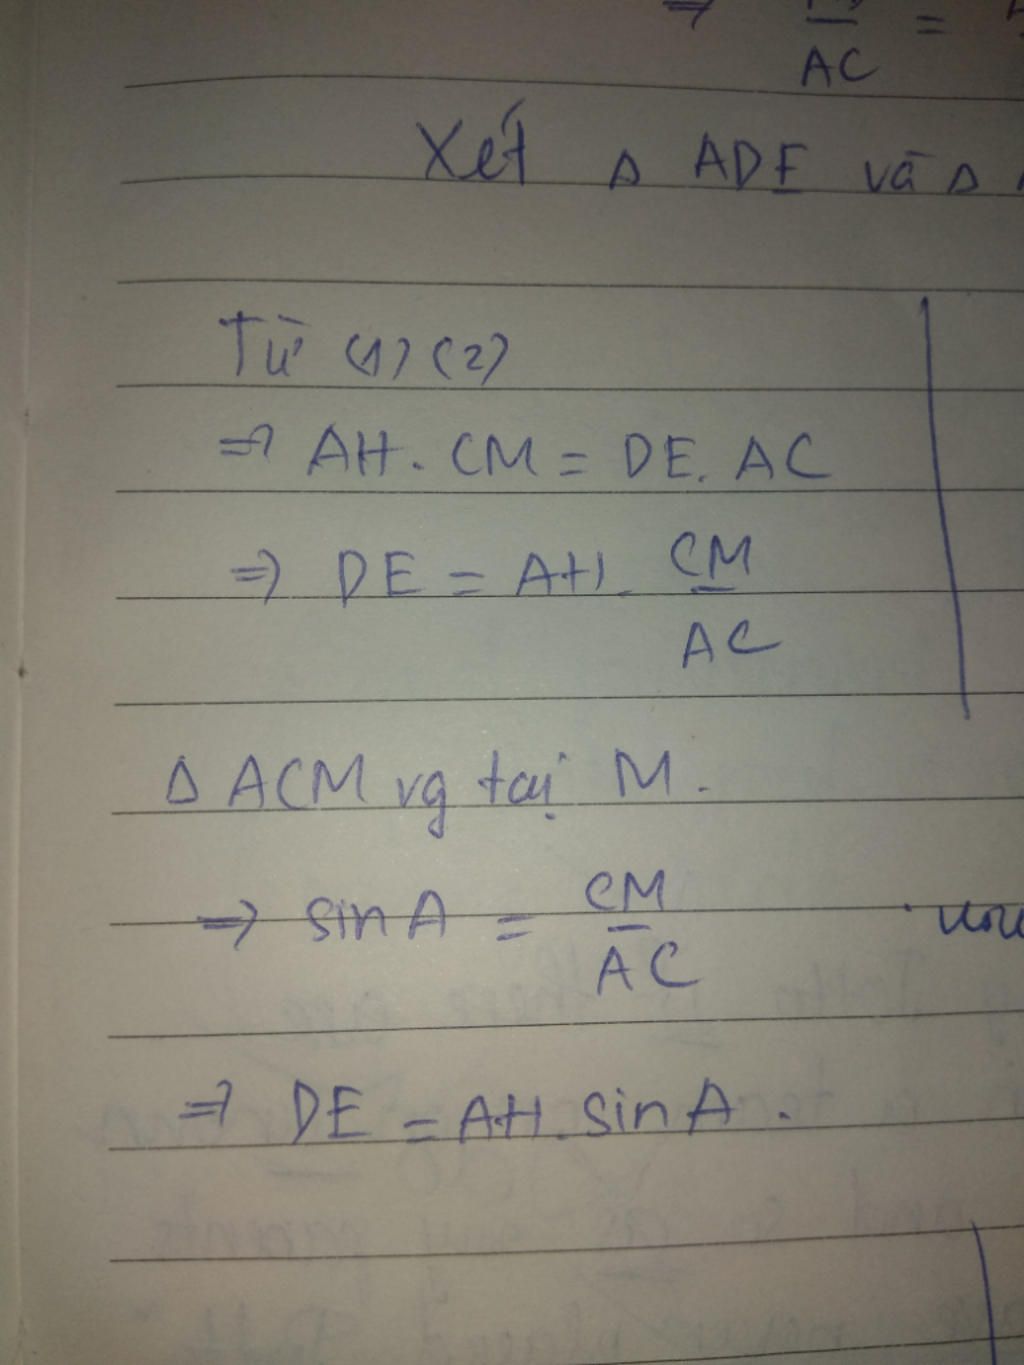 ⇒ CM/AC =
Xét Δ ADE và Δ
Từ (1) (2)
⇒ AH. CM = DE. AC
⇒ DE = AH. CM/AC
Δ ACM vg tại M.
⇒ sin A = CM/AC
⇒ DE = AH. sin A.